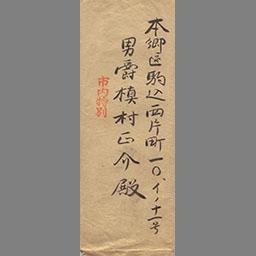 本郷区駒込西片町一〇、イノ十一号
男爵槙村正介殿
市内特別